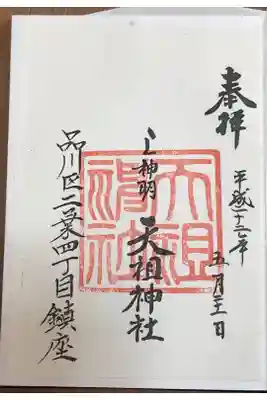 奉拝
平成二十三年
五月
上神明
天祖神社
品川区二葉四丁目鎮座
天祖
神社